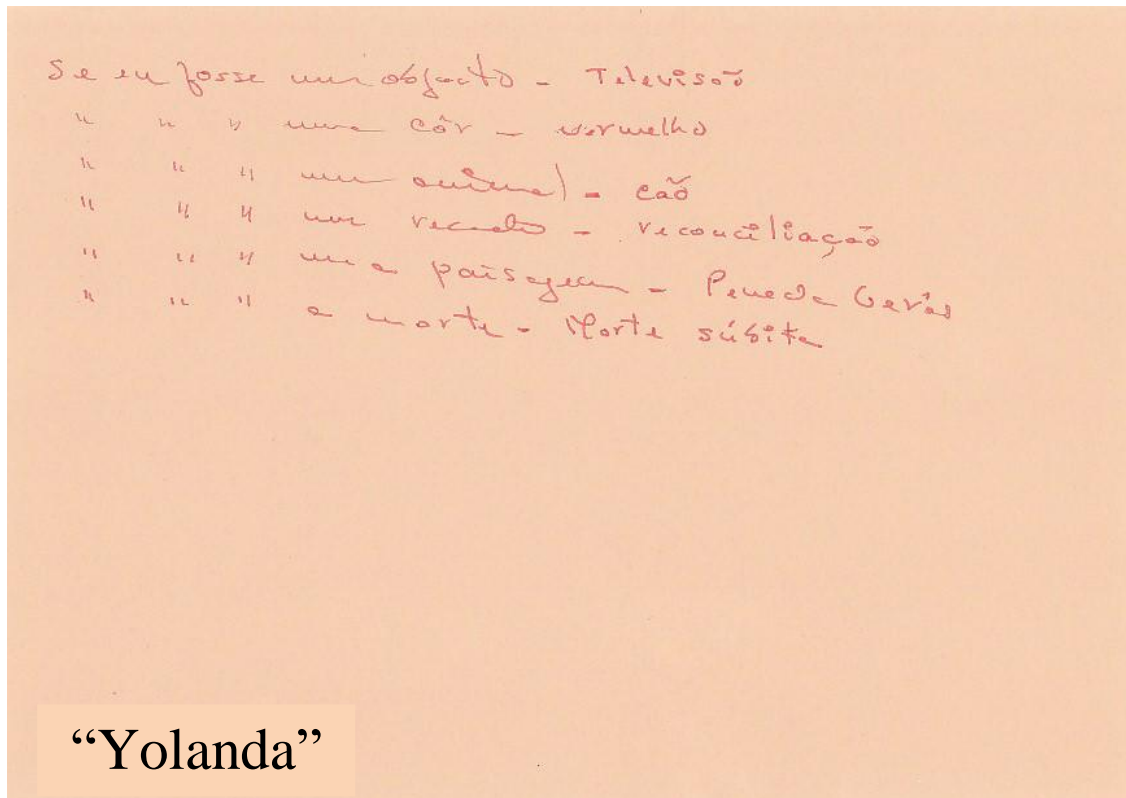 Se eu fosse um objecto - Televisão
" " " uma côr - vermelho
" " " um animal - cão
" " " um recado - reconciliação
" " " uma paisagem - Peneda Gerês
" " " a morte - Morte súbita
"Yolanda"